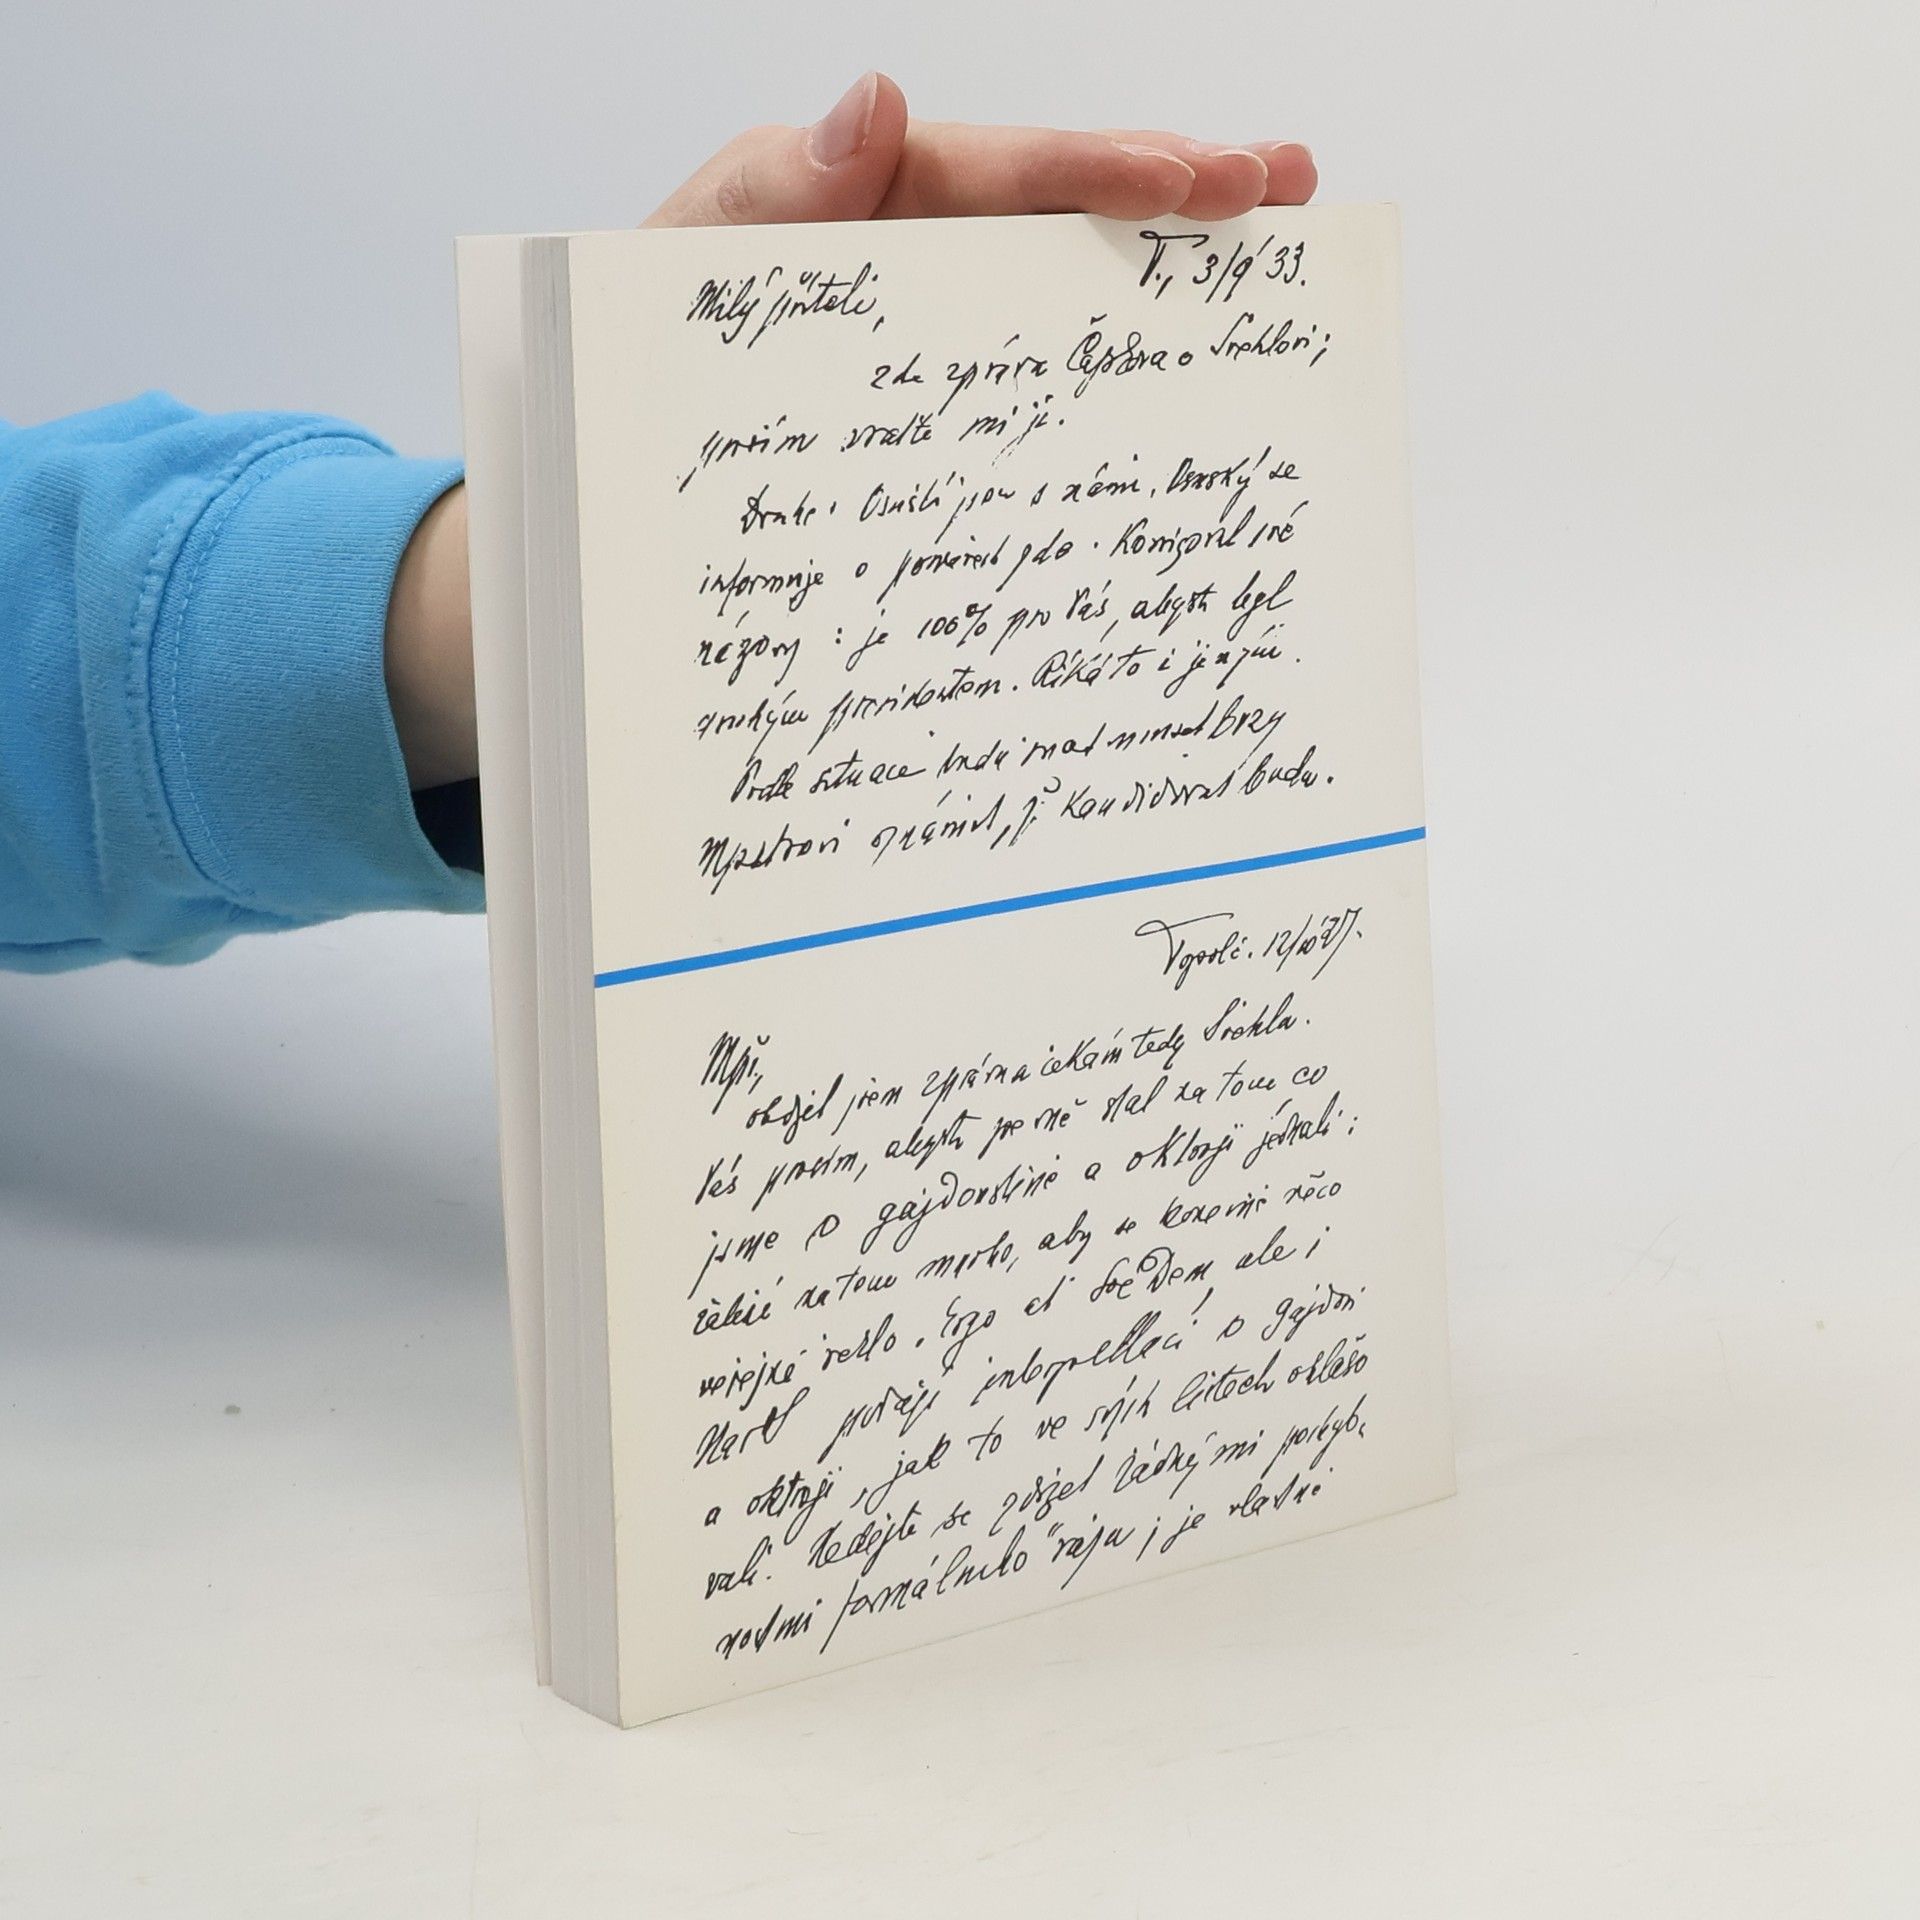 T., 3/9 33.
Milý příteli,
zde zpráva Čapkova o Švehlovi;
prosím vraťte mi ji.
Druhé: Osuští jsou s námi. Osuský se
informuje o poměrech zde. Korigoval své
názory: je 100% pro Vás, abyste byl
druhým presidentem. Říká to i jiným.
Podle situace budu snad muset brzy
Mpstrovi oznámit, že kandidovat budu.
Topolč. 12/ 27.
Mpř.,
obdržel jsem zprávu a čekám tedy Švehla.
Vás prosím, abyste pevně stál na tom co
jsme o gajdovštině a oktroji jednali:
záleží na tom mnoho, aby se konečně něco
veřejně řeklo. Ergo ať Soc Dem, ale i
Nar S podají interpellaci o gajdovi
a oktroji, jak to ve svých listech ohlašo
vali. Nedejte se zdržet žádnými pochyb.
nostmi formálního rázu; je vlastně